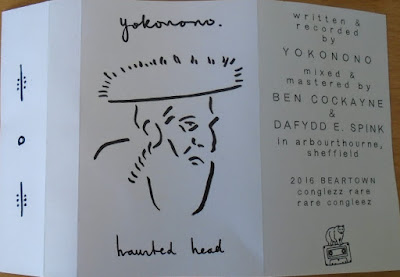 yokonono.
haunted head
written &
recorded
by
YOKONONO
mixed &
mastered by
BEN COCKAYNE
&
DAFYDD E. SPINK
in arbourthourne,
sheffield
2016 BEARTOWN
conglezz rare
rare congleez